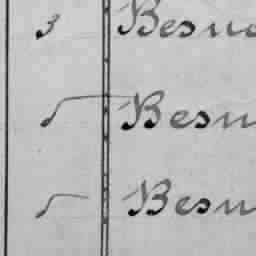 3 Besu
5 Besu
5 Besu